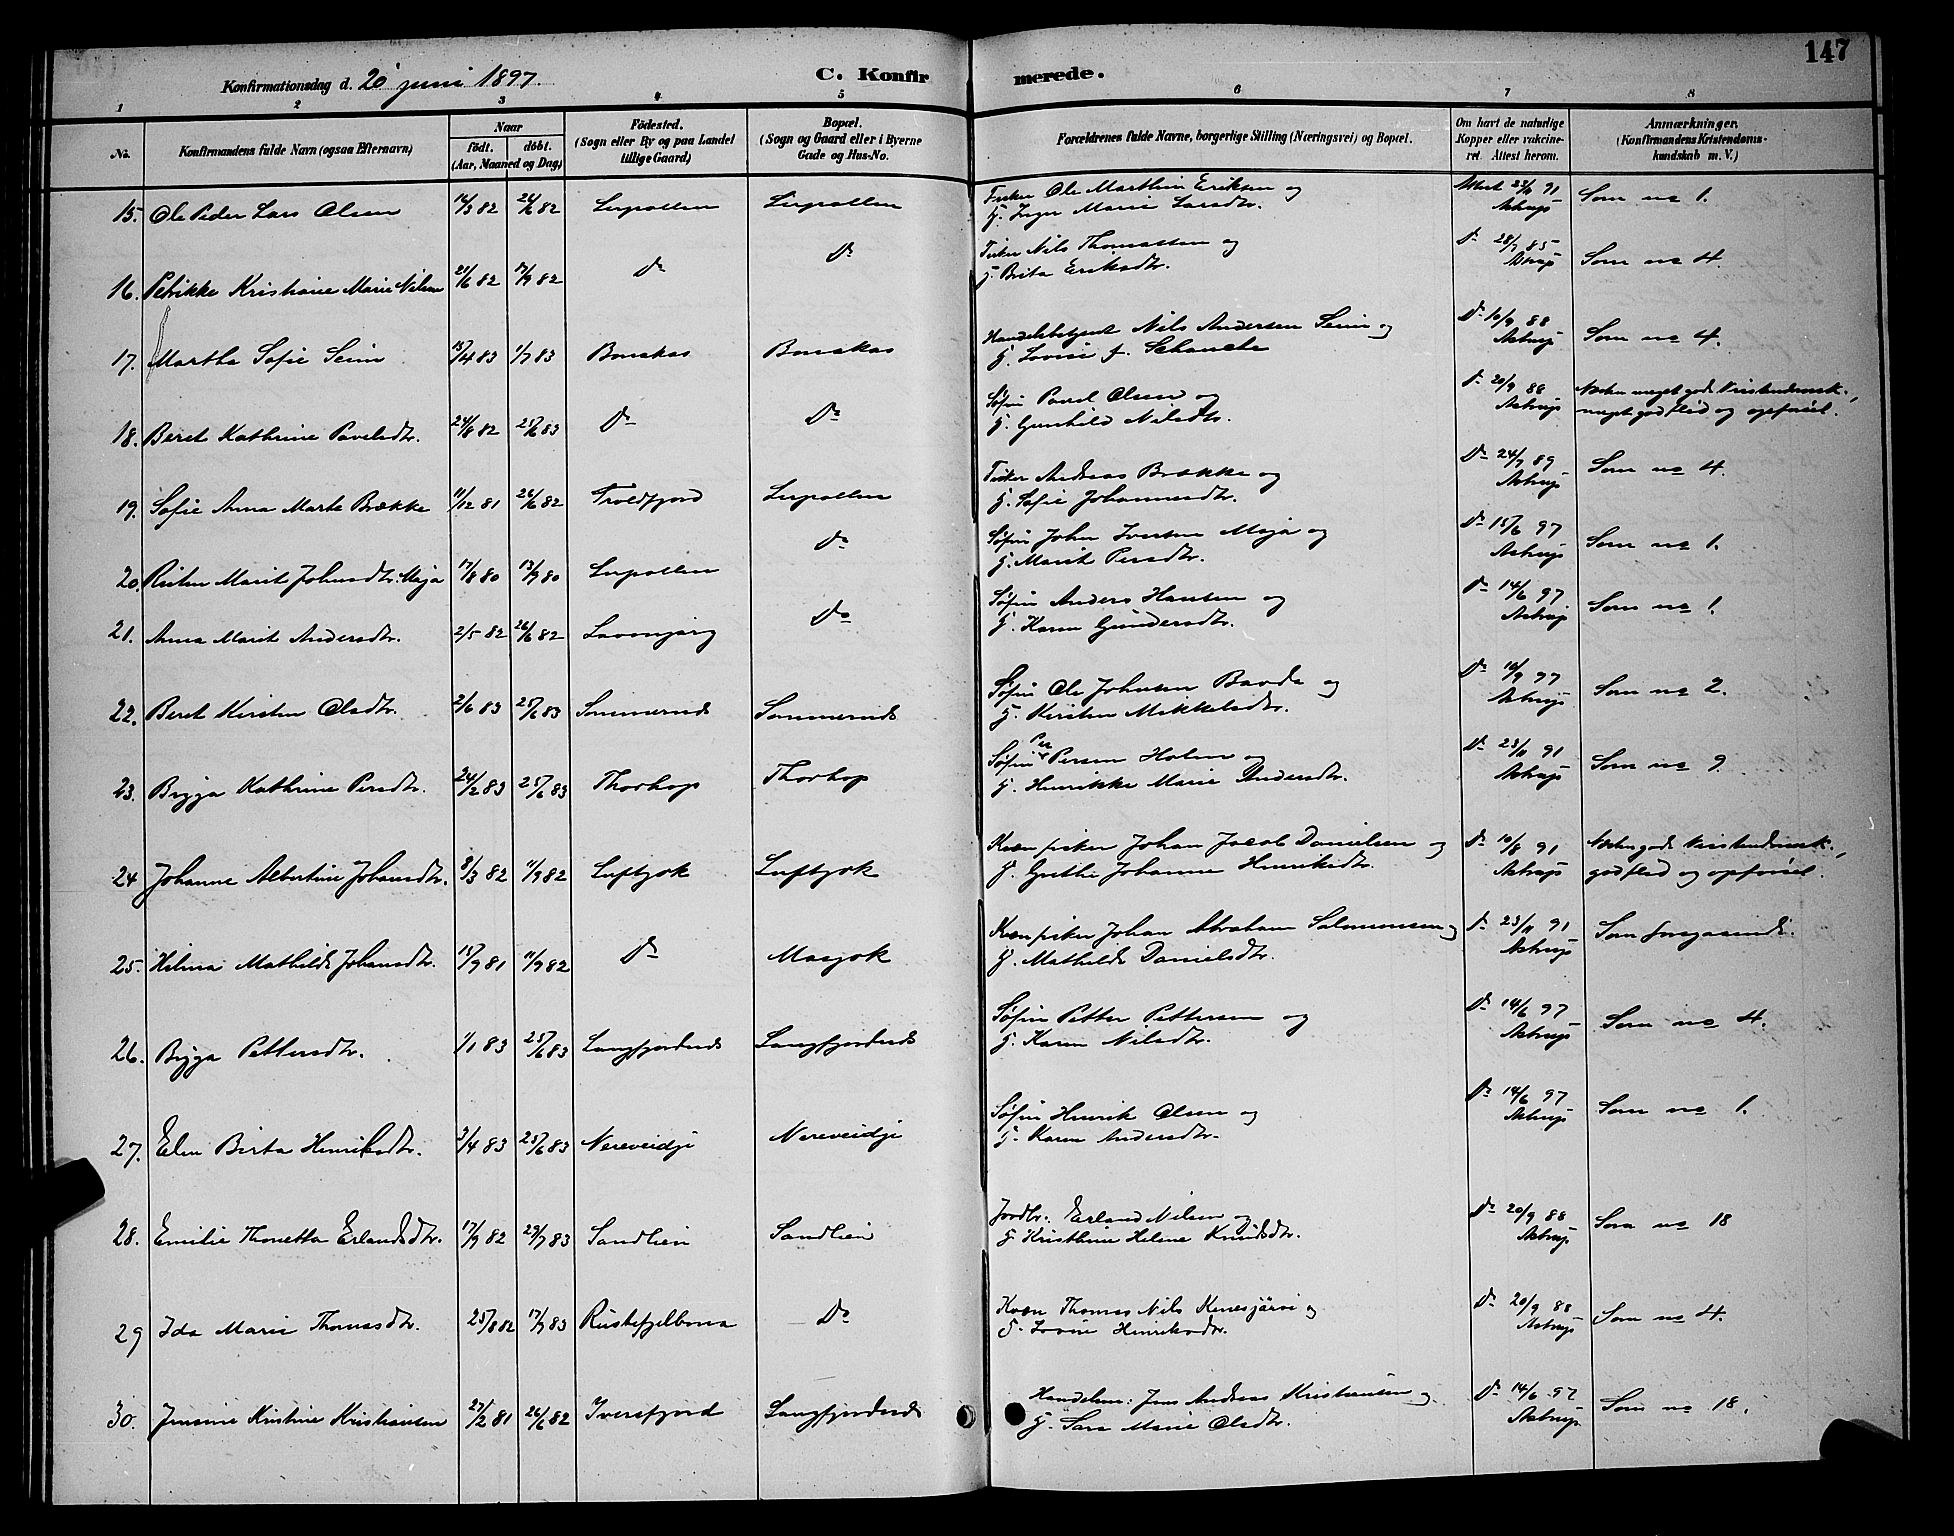 147
Konfirmationsdag d. 20 juni 1897. C. Konfirmerede.
1 2 3 4 5 6 7 8
No. Konfirmandens fulde Navn (ogsaa Efternavn) Naar födt. döbt. (Aar, Maaned og Dag) Födested. (Sogn eller By og paa Landet tillige Gaard) Bopæl. (Sogn og Gaard eller i Byerne Gade og Hus-No. Forældrenes fulde Navne, borgerlige Stilling (Næringsvei) og Bopæl. Om havt de naturlige Kopper eller vakcineret. Attest herom. Anmærkninger. (Konfirmandens Kristendomskundskab m. V.)
15. Ole Peder Lars Olsen 14/3 82 26/6 82 Lerpollen Lerpollen Fisker Ole Marthin Eriksen og
G. Inger Marie Larsdtr. Attest 91 Astrup Som no 1.
16. Petrikke Kristiane Marie Nilsen 21/6 82 17/9 82 Do Do Fisker Nils Thomassen og
G. Brita Eriksdtr. Do 28/7 85 Astrup Som no 4.
17. Martha Sofie Seim 15/4 83 1/7 83 Bonakas Bonakas Handelsbetjent Nils Andersen Seim og
G. Lovise f. Schanche Do 10/9 88 Astrup Som no 4.
18. Beret Kathrine Pavelsdtr. 24/8 82 25/6 83 Do Do Søfin Pavel Olsen og
G. Gunhild Nilsdtr. Do 20/9 88 Astrup Næsten meget god Kristendomsk.,
meget god flid og opførsel.
19. Sofie Anna Marte Brække 11/12 81 26/6 82 Troldfjord Lerpollen Fisker Andreas Brække og
G. Sofie Johannesdtr. Do 24/7 89 Astrup Som no 4.
20. Risten Marit Johnsdtr. Meja 17/8 80 13/9 80 Lerpollen Do Søfin John Iversen Meja og
G. Marit Persdtr. Do 15/6 97 Astrup Som no 1.
21. Anna Marit Andersdtr. 2/5 82 26/6 82 Lavonjarg Do Søfin Anders Hansen og
G. Karen Gundersdtr. Do 14/6 97 Astrup Som no 1.
22. Beret Kirsten Olsdtr. 2/6 83 25/6 83 Sommernæs Sommernæs Søfin Ole Johnsen Bavda og
G. Kirsten Mikkelsdtr. Do Astrup Som no 2.
23. Brigja Kathrine Persdtr. 24/2 83 25/6 83 Thorhop Thorhop Søfin Per Persen Holm og
G. Henrikke Marie Andersdtr. Do 23/11 91 Astrup Som no 9.
24 Johanne Albertine Johansdtr. 8/3 82 11/9 82 Luftjok Luftjok Kvæn fisker Johan Jacob Danielsen og
G. Grethe Johanne Henriksdtr. Do 10/8 91 Astrup Næsten god Kristendomsk.,
god flid og opførsel.
25. Helma Mathilde Johansdtr. 15/9 81 11/9 82 Do Masjok Kvæn fisker Johan Abraham Salomonsen og
G. Mathilde Danielsdtr. Do 23/11 91 Astrup Som foregaaende.
26. Brigja Pettersdtr. 1/1 83 25/6 83 Langfjordnæs Langfjordnæs Søfin Petter Pettersen og
G. Karen Nilsdtr. Do 14/6 97 Astrup Som no 4.
27. Elen Birta Henriksdtr. 3/4 83 25/6 83 Nereveidji Nereveidji Søfin Henrik Olsen og
G. Karen Andersdtr. Do 14/6 97 Astrup Som no 1.
28. Emilie Thonetta Erlandsdtr. 17/9 82 29/7 83 Sandlien Sandlien Jordbr: Erland Nilsen og
G. Kristhine Helene Knudsdtr. Do 20/9 88 Astrup Som no 18
29 Ida Marie Thomasdtr. 25/8 82 17/9 83 Rustefjelbma Do Kvæn Thomas Nils Kenesjärvi og
G. Lovise Henriksdtr. Do 20/9 88 Astrup Som no 4.
30. Jensine Kristine Kristiansen 27/2 81 26/6 82 Iversfjord Langfjordnæs Handelsm: Jens Andreas Kristiansen og
G. Sara Marie Olsdtr. Do 14/6 97 Astrup Som no 18.